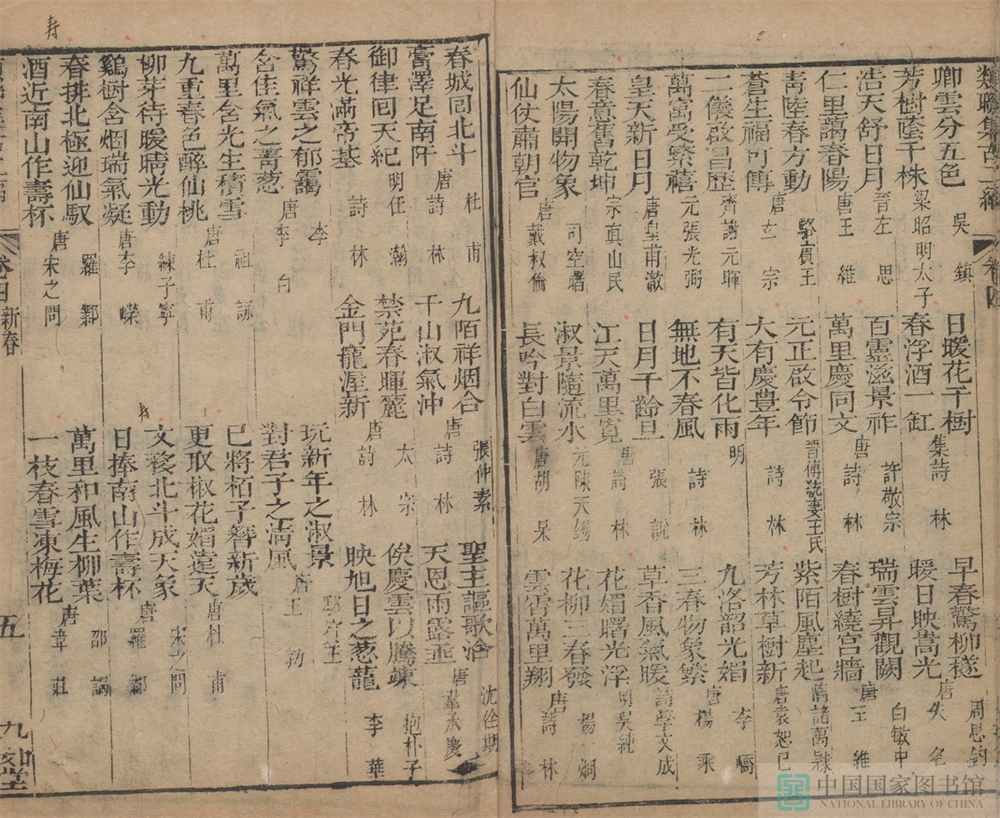 類聯集古二編 卷四
卿雲分五色 吳鎮 日暖花千樹 集詩林 早春驚柳穟 周思鈞
芳樹蔭千株 梁昭明太子 春浮酒一缸 暖日映嵩光 唐失名
浩天舒日月 晉左思 百靈滋景祚 許敬宗 瑞雲昇觀闕 白敏中
仁里藹春陽 唐王維 萬里慶同文 唐詩林 春樹繞宮牆 唐王維
青陸春方動 駱賓王 元正啟令節 晉傅統妻王氏 紫陌風塵起 諸葛穎
蒼生福可傳 唐玄宗 大有慶豐年 詩林 芳林草樹新 唐袁恕己
二儀啟昌歷 齊謝元暉 有天皆化雨 明 九洛韶光媚 李嶠
萬寓受繁禧 元張光弼 無地不春風 詩林 三春物象繁 唐楊乘
皇天新日月 唐皇甫澈 日月千齡旦 張說 草香風氣暖 詩學文成
春意舊乾坤 宗真山民 江天萬里寬 唐詩林 花媚曙光浮 明吳純
太陽開物象 司空曙 淑景隨流水 元陳天錫 花柳三春發 楊炯
仙仗肅朝官 唐戴叔倫 長吟對白雲 唐胡杲 雲霄萬里翔 唐詩林
春城回北斗 杜甫 九陌祥烟合 張仲素 聖主謳歌洽 沈佺期
膏澤足南阡 唐詩林 千山淑氣沖 唐詩林 天恩雨露垂 唐
御律囘天紀 明任瀚 禁苑春暉麗 太宗 俟慶雲以騰竦 抱朴子
春光滿帝基 詩林 金門寵渥新 唐詩林 映旭日之葱蘢 李華
驚祥雲之郁靄 李 玩新年之淑景 駱賓王
含佳氣之菁葱 唐李白 對君子之清風 唐王勃
萬里含光生積雪 祖詠 已將栢子簪新歲
九重春色醉仙桃 唐杜甫 更取椒花媚遠天 唐杜甫
柳芽待暖晴光動 練子寧 文移北斗成天象 宋之問
鷄樹含烟瑞氣凝 唐李嶸 日捧南山作壽杯 唐羅鄴
春排北極迎仙馭 羅鄴 萬里和風生柳葉 邵謁
酒近南山作壽杯 唐宋之問 一枝春雪凍梅花 唐韋莊
卷四 新春 五
壽
中国国家图书馆
NATIONAL LIBRARY OF CHINA